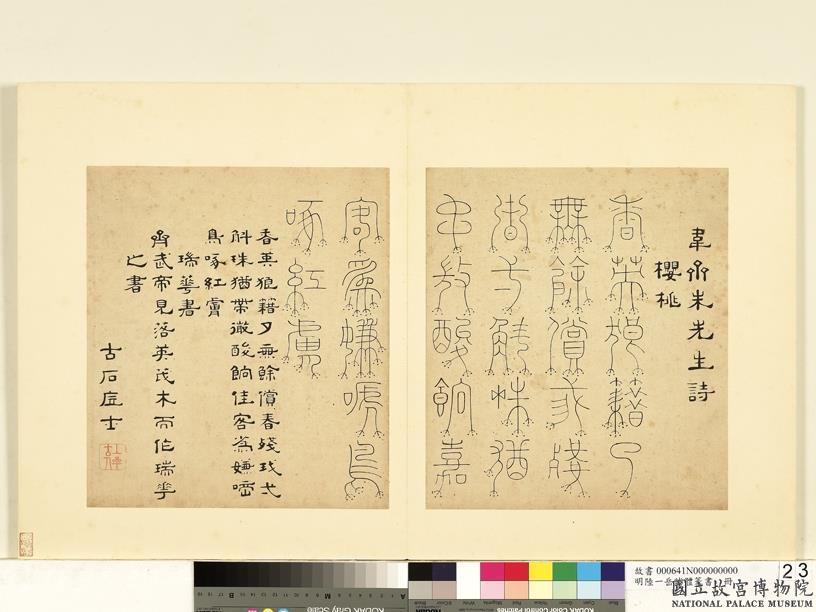 韋齋朱先生詩
櫻桃
春英狼籍夕
無餘償我殘
春弌斛珠猶
帶微酸餉嘉
客為嫌啼鳥
啄紅膚
春英狼籍夕無餘償春殘我弌
斛珠猶帶微酸餉佳客為嫌啼
鳥啄紅膚
瑞華書
齊武帝見落英茂木而作瑞華
之書
古石居士
故書 000641N000000000
23
國立故宮博物院
NATIONAL PALACE MUSEUM